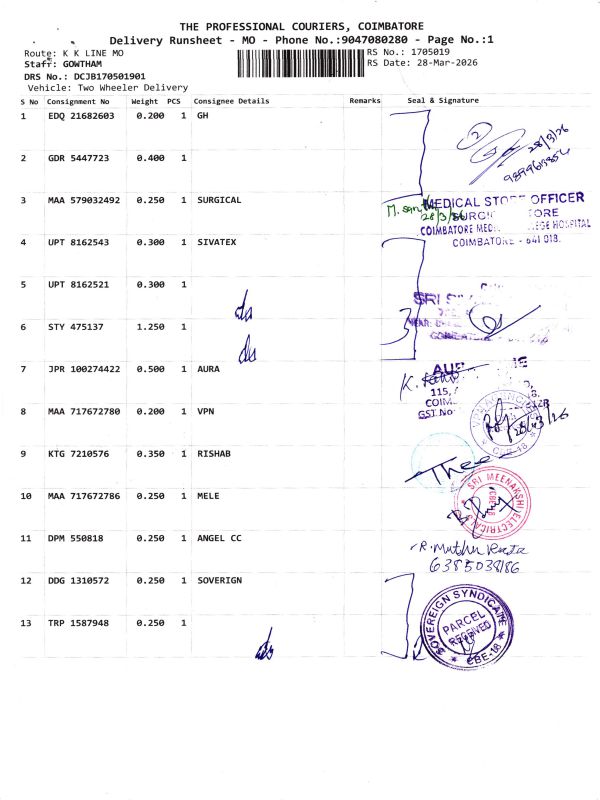 THE PROFESSIONAL COURIERS, COIMBATORE
Delivery Runsheet - MO - Phone No.:9047080280 - Page No.:1
Route: K K LINE MO
RS No.: 1705019
Staff: GOWTHAM
RS Date: 28-Mar-2026
DRS No.: DCJB170501901
Vehicle: Two Wheeler Delivery
S No Consignment No Weight PCS Consignee Details Remarks Seal & Signature
1 EDQ 21682603 0.200 1 GH
28/3/26
2 GDR 5447723 0.400 1
3 MAA 579032492 0.250 1 SURGICAL
MEDICAL STORE OFFICER
28/3/26
COIMBATORE
HOSPITAL
4 UPT 8162543 0.300 1 SIVATEX
COIMBATORE - 641 018.
5 UPT 8162521 0.300 1
SRI
6 STY 475137 1.250 1
7 JPR 100274422 0.500 1 AURA
115,
GST No
8 MAA 717672780 0.200 1 VPN
28/03/26
CBE-18
9 KTG 7210576 0.350 1 RISHAB
10 MAA 717672786 0.250 1 MELE
SRI MEENAKSHI ELECTRICALS
CBE-18
11 DPM 550818 0.250 1 ANGEL CC
6385038186
12 DDG 1310572 0.250 1 SOVERIGN
SOVEREIGN SYNDICATE
PARCEL
RECEIVED
CBE-18
13 TRP 1587948 0.250 1